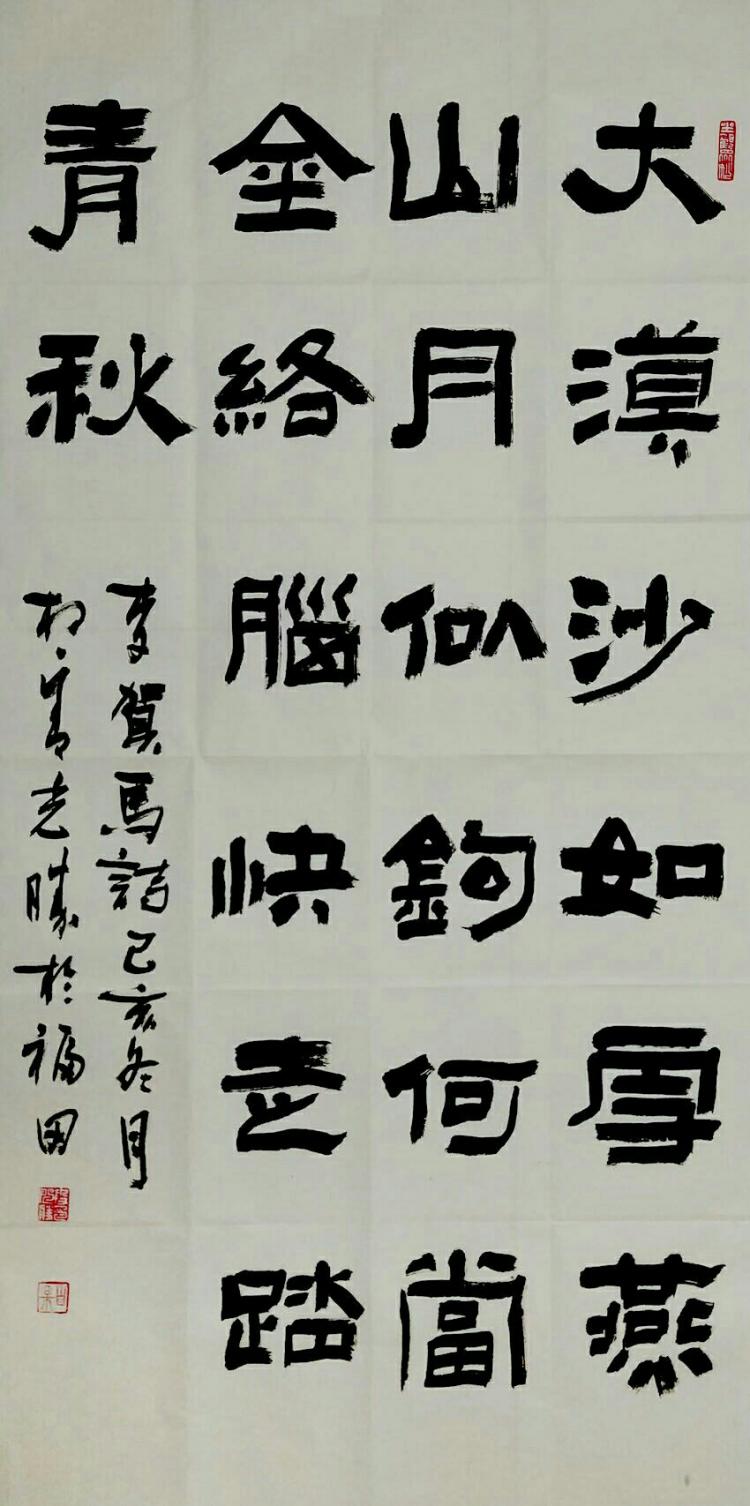 大漠沙如雪燕
山月似鉤何當
金絡腦快走踏
青秋
李賀馬詩己亥冬月
光勝於福田